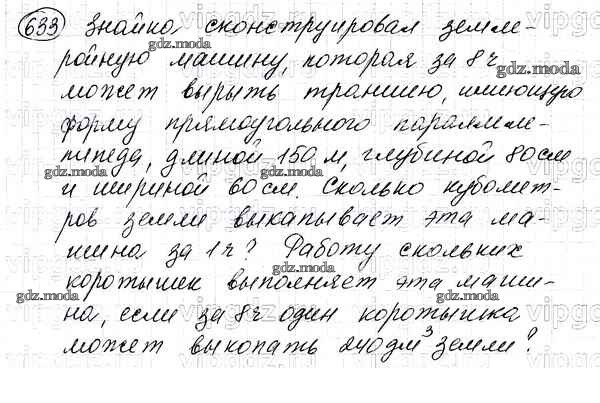 633 Знайка сконструировал земле-
ройную машину, которая за 8 ч
может вырыть траншею, имеющую
форму прямоугольного параллеле-
пипеда, длиной 150 м, глубиной 80 см
и шириной 60 см. Сколько кубомет-
ров земли выкапывает эта ма-
шина за 1 ч? Работу скольких
коротышек выполняет эта маши-
на, если за 8 ч один коротышка
может выкопать 240 дм³ земли?